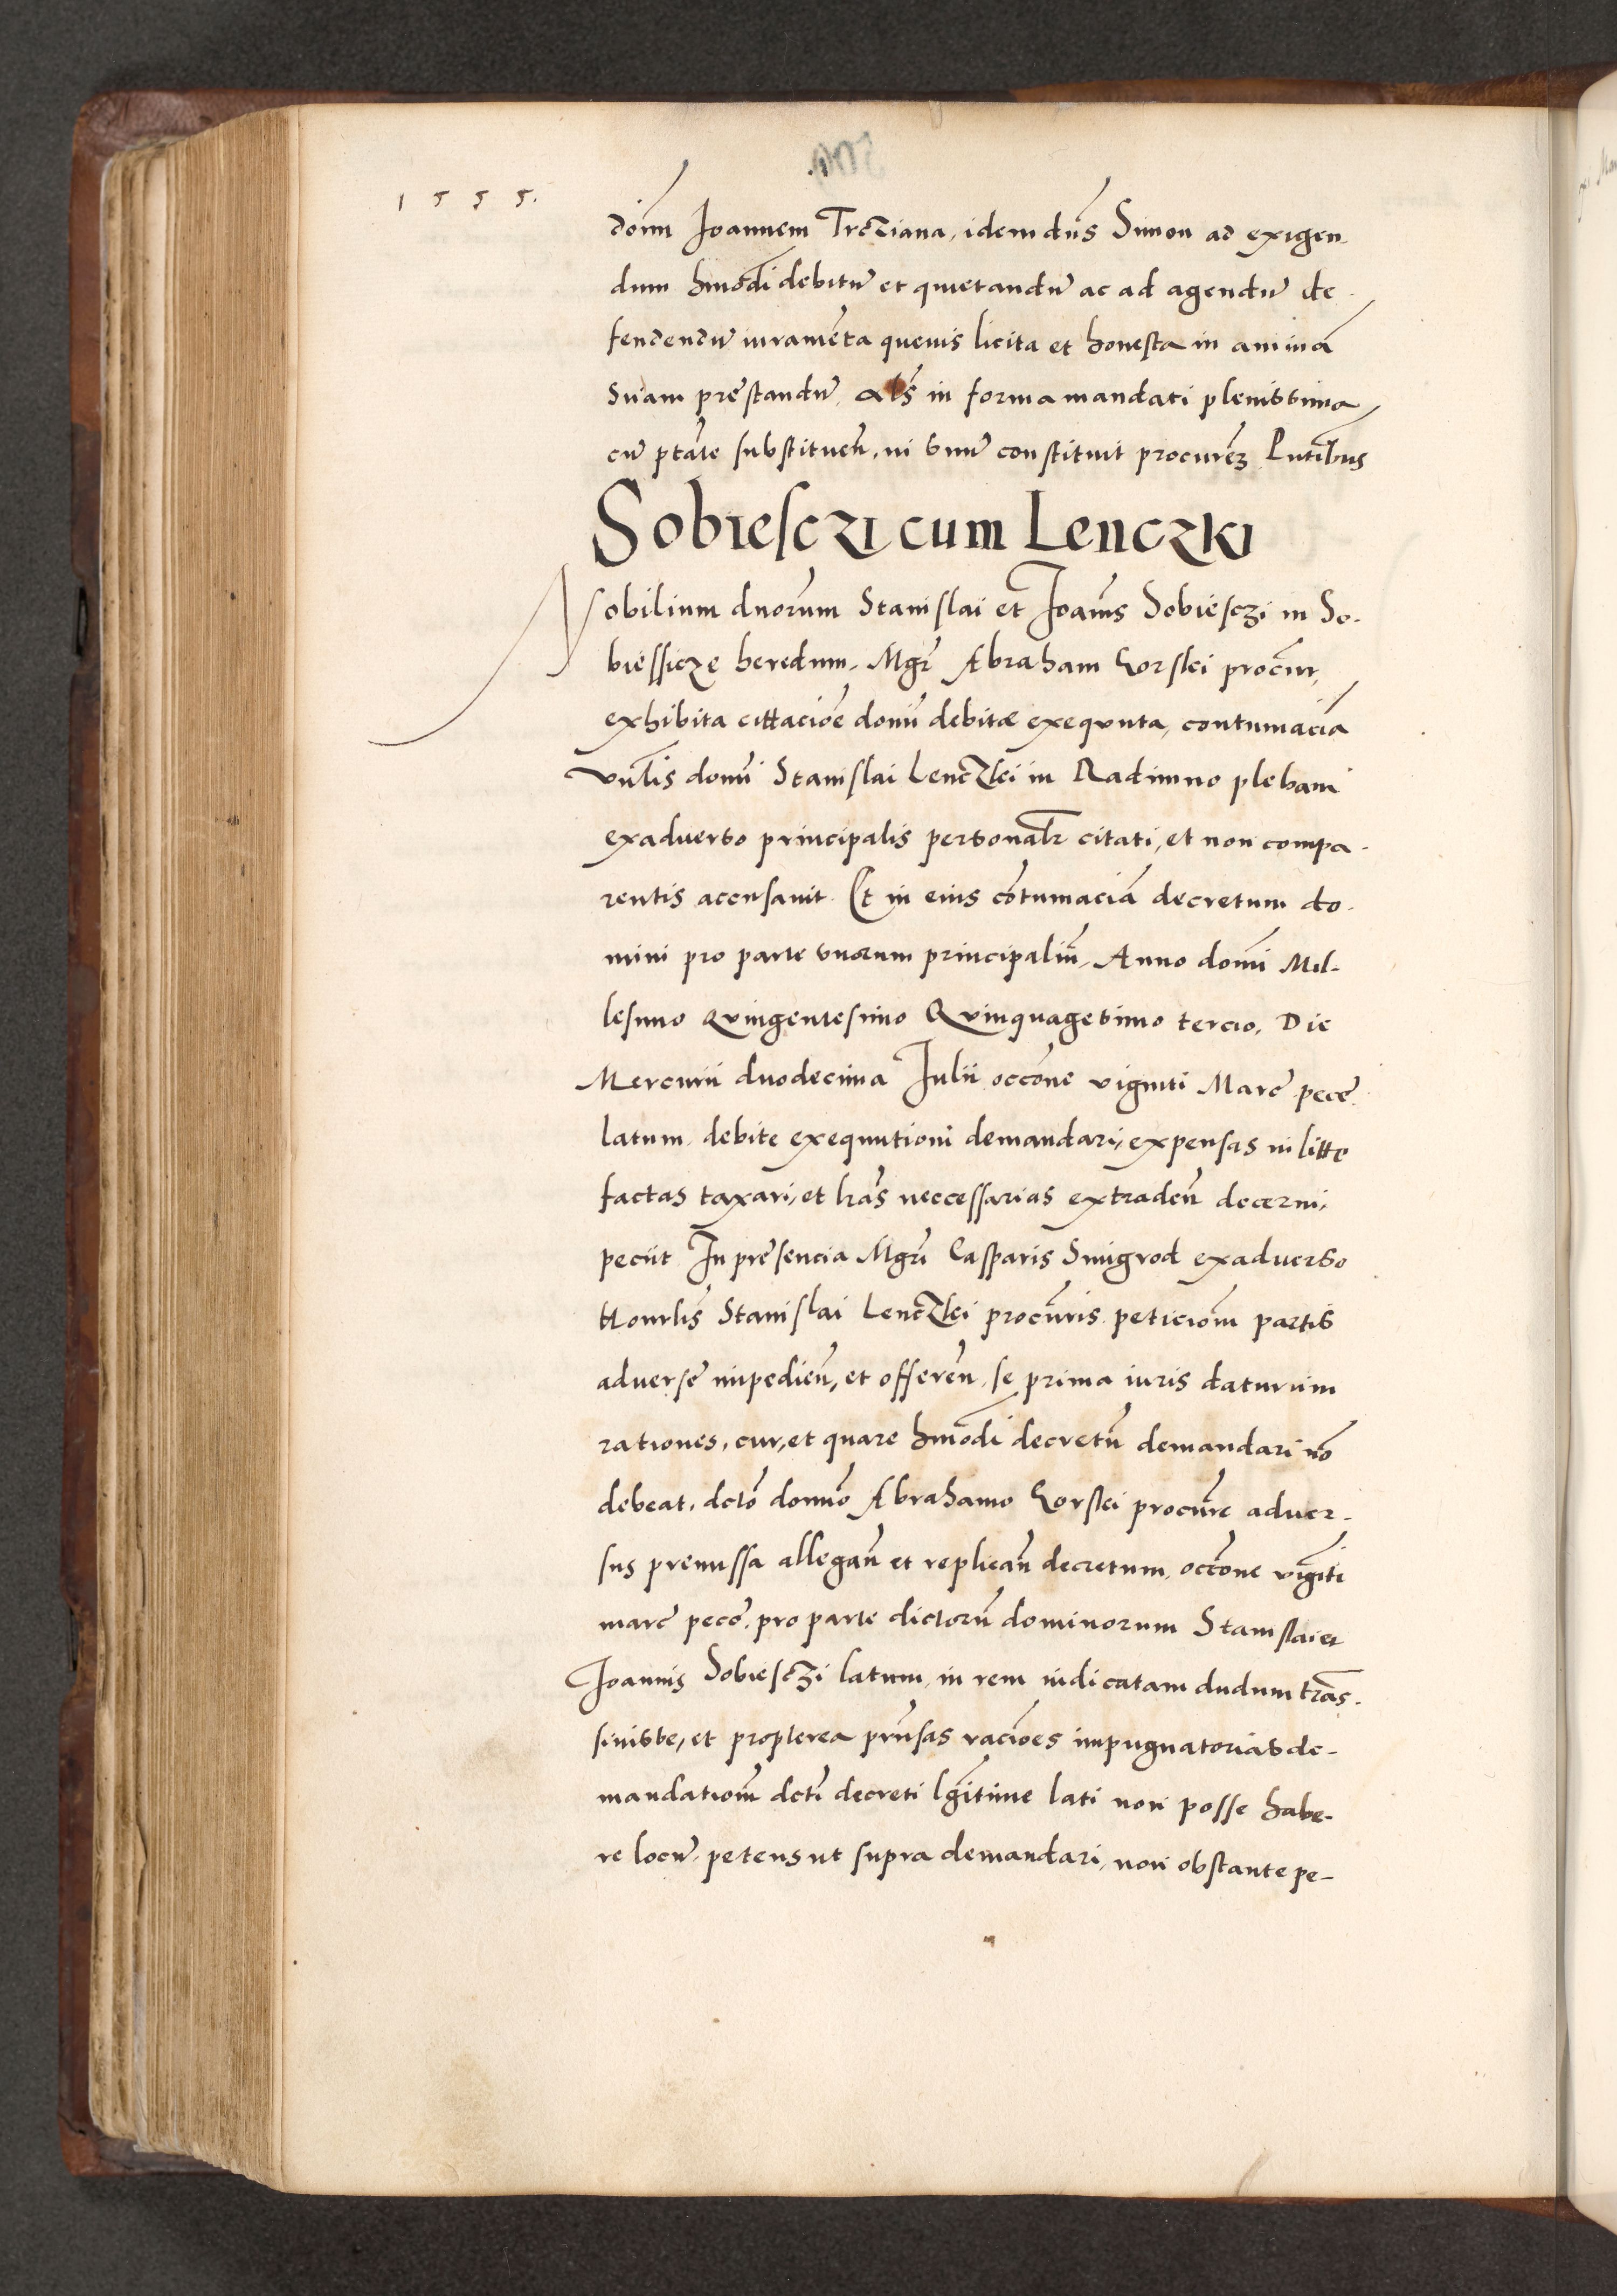 1555.
dom̄ Joannem Trcziana, idem dns̄ Simon ad exigen-
dum hmōdi debitū et quietandū ac ad agendū de-
fendendū iuramēta quevis licita et honesta in animā
suam prestandū, als̄ in forma mandati plenissima
cū ptāte substituen̄. in unū constituit procurem̄ Pntibus
Sobiesczi cum Lenczki
Nobilium duorum Stanislai et Joanis̄ Sobiesczi in So-
biessicze heredum, Mgr̄ Abraham Gorski procur̄,
exhibita cittaciōe domī debitæ exequuta, contumaciā
Vnlis̄ domī Stanislai Lenczki in Radimno plebani
exaduerso principalis personalr̄ citati, et non compa-
rentis accusauit. Et in eius cōtumaciā decretum do-
mini pro parte suorum principaliū, Anno domī Mil-
lesimo Quingentesimo Quinquagesimo tercio, Die
Mercurii duodecima Julii occōne viginti Marc̄ pecc̄
latum debite exequutioni demandari, expensas in litte
factas taxari, et lrās neccessarias extraden̄ decerni,
peciit In presencia Mgrī Casparis Smigrod exaduerso
Honrlis̄ Stanislai Lenczki procuris̄ peticiom̄ partis
aduersę impedien̄, et offeren̄ se prima iuris daturum
rationes, cur, et quare hmōdi decretū demandari nō
debeat, dctō domīo Abrahamo Gorski procure aduer-
sus premissa allegan̄ et replican̄ decretum, occōne vigīti
marc̄ pecc̄. pro parte dictorū dominorum Stanislai et
Joannis Sobiesczi latum, in rem iudicatam dudum trās-
siuisse, et propterea prn̄sas raciōes impugnatorias de-
mandatiom̄ dctī decreti lgitime lati non posse habe-
re locū, petens ut supra demandari, non obstante pe-